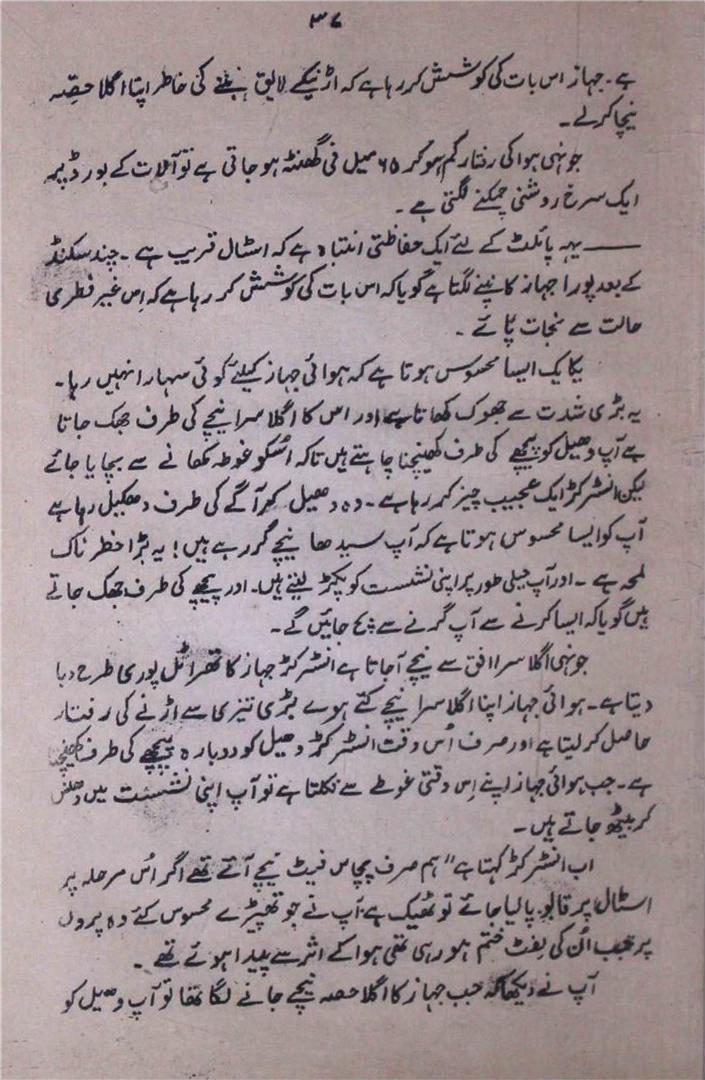 ۳۷
ہے۔ جہاز اس بات کی کوشش کر رہا ہے کہ اڑنیکے لایق بننے کی خاطر اپنا اگلا حصہ
نیچا کرلے۔
جونہی ہوا کی رفتار کم ہو کر ۶۵ میل فی گھنٹہ ہو جاتی ہے تو آلات کے بورڈ پر
ایک سرخ روشنی چمکنے لگتی ہے۔
—— یہہ پائلٹ کے لئے ایک حفاظتی انتباہ ہے کہ اسٹال قریب ہے۔ چند سکنڈ
کے بعد پورا جہاز کانپنے لگتا ہے گویا کہ اس بات کی کوشش کر رہا ہے کہ اِس غیر فطری
حالت سے نجات پائے۔
یکایک ایسا محسوس ہوتا ہے کہ ہوائی جہاز کیلئے کوئی سہارا نہیں رہا۔
یہ بڑی شدت سے جھوک کھاتا ہے اور اس کا اگلا سرا نیچے کی طرف جھک جاتا
ہے آپ وھیل کو پیچھے کی طرف کھینچنا چاہتے ہیں تاکہ اسکو غوطہ کھانے سے بچایا جائے
لیکن انسٹرکڑ ایک عجیب چیز کر رہا ہے۔ وہ وھیل کو آگے کی طرف دھکیل رہا ہے
آپ کو ایسا محسوس ہوتا ہے کہ آپ سیدھا نیچے گر رہے ہیں! یہ بڑا خطرناک
لمحہ ہے۔ اور آپ جبلی طور پر اپنی نشست کو پکڑ لیتے ہیں۔ اور پیچھے کی طرف جھک جاتے
ہیں گویا کہ ایسا کرنے سے آپ گرنے سے بچ جائیں گے۔
جونہی اگلا سرا افق سے نیچے آجاتا ہے انسٹرکڑ جہاز کا تھراٹل پوری طرح دبا
دیتا ہے۔ ہوائی جہاز اپنا اگلا سرا نیچے کئے ہوے بڑی تیزی سے اڑنے کی رفتار
حاصل کر لیتا ہے اور صرف اُس وقت انسٹرکڑ وھیل کو دوبارہ پیچھے کی طرف کھینچتا
ہے۔ جب ہوائی جہاز اپنے اِس وقتی غوطے سے نکلتا ہے تو آپ اپنی نشست میں دھنس
کر بیٹھ جاتے ہیں۔
اب انسٹرکڑ کہتا ہے "ہم صرف پچاس فیٹ نیچے آئے تھے اگر اُس مرحلہ پر
اسٹال پر قابو پا لیا جائے تو ٹھیک ہے آپ نے جو تھپیڑے محسوس کئے وہ پروں
پر جب اُن کی لفٹ ختم ہو رہی تھی ہوا کے اثر سے پیدا ہوئے تھے۔
آپ نے دیکھا کہ جب جہاز کا اگلا حصہ نیچے جانے لگا تھا تو آپ وھیل کو